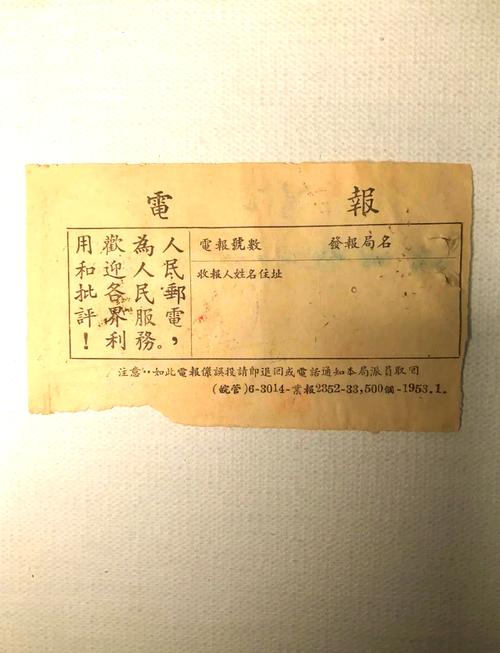 電報
人民郵電，
為人民服務。
歡迎各界利
用和批評！
電報號數
發報局名
收報人姓名住址
注意··如此電報係誤投請即退回或電話通知本局派員取回
(皖管)6-3014-業報2352-33,500個-1953.1.